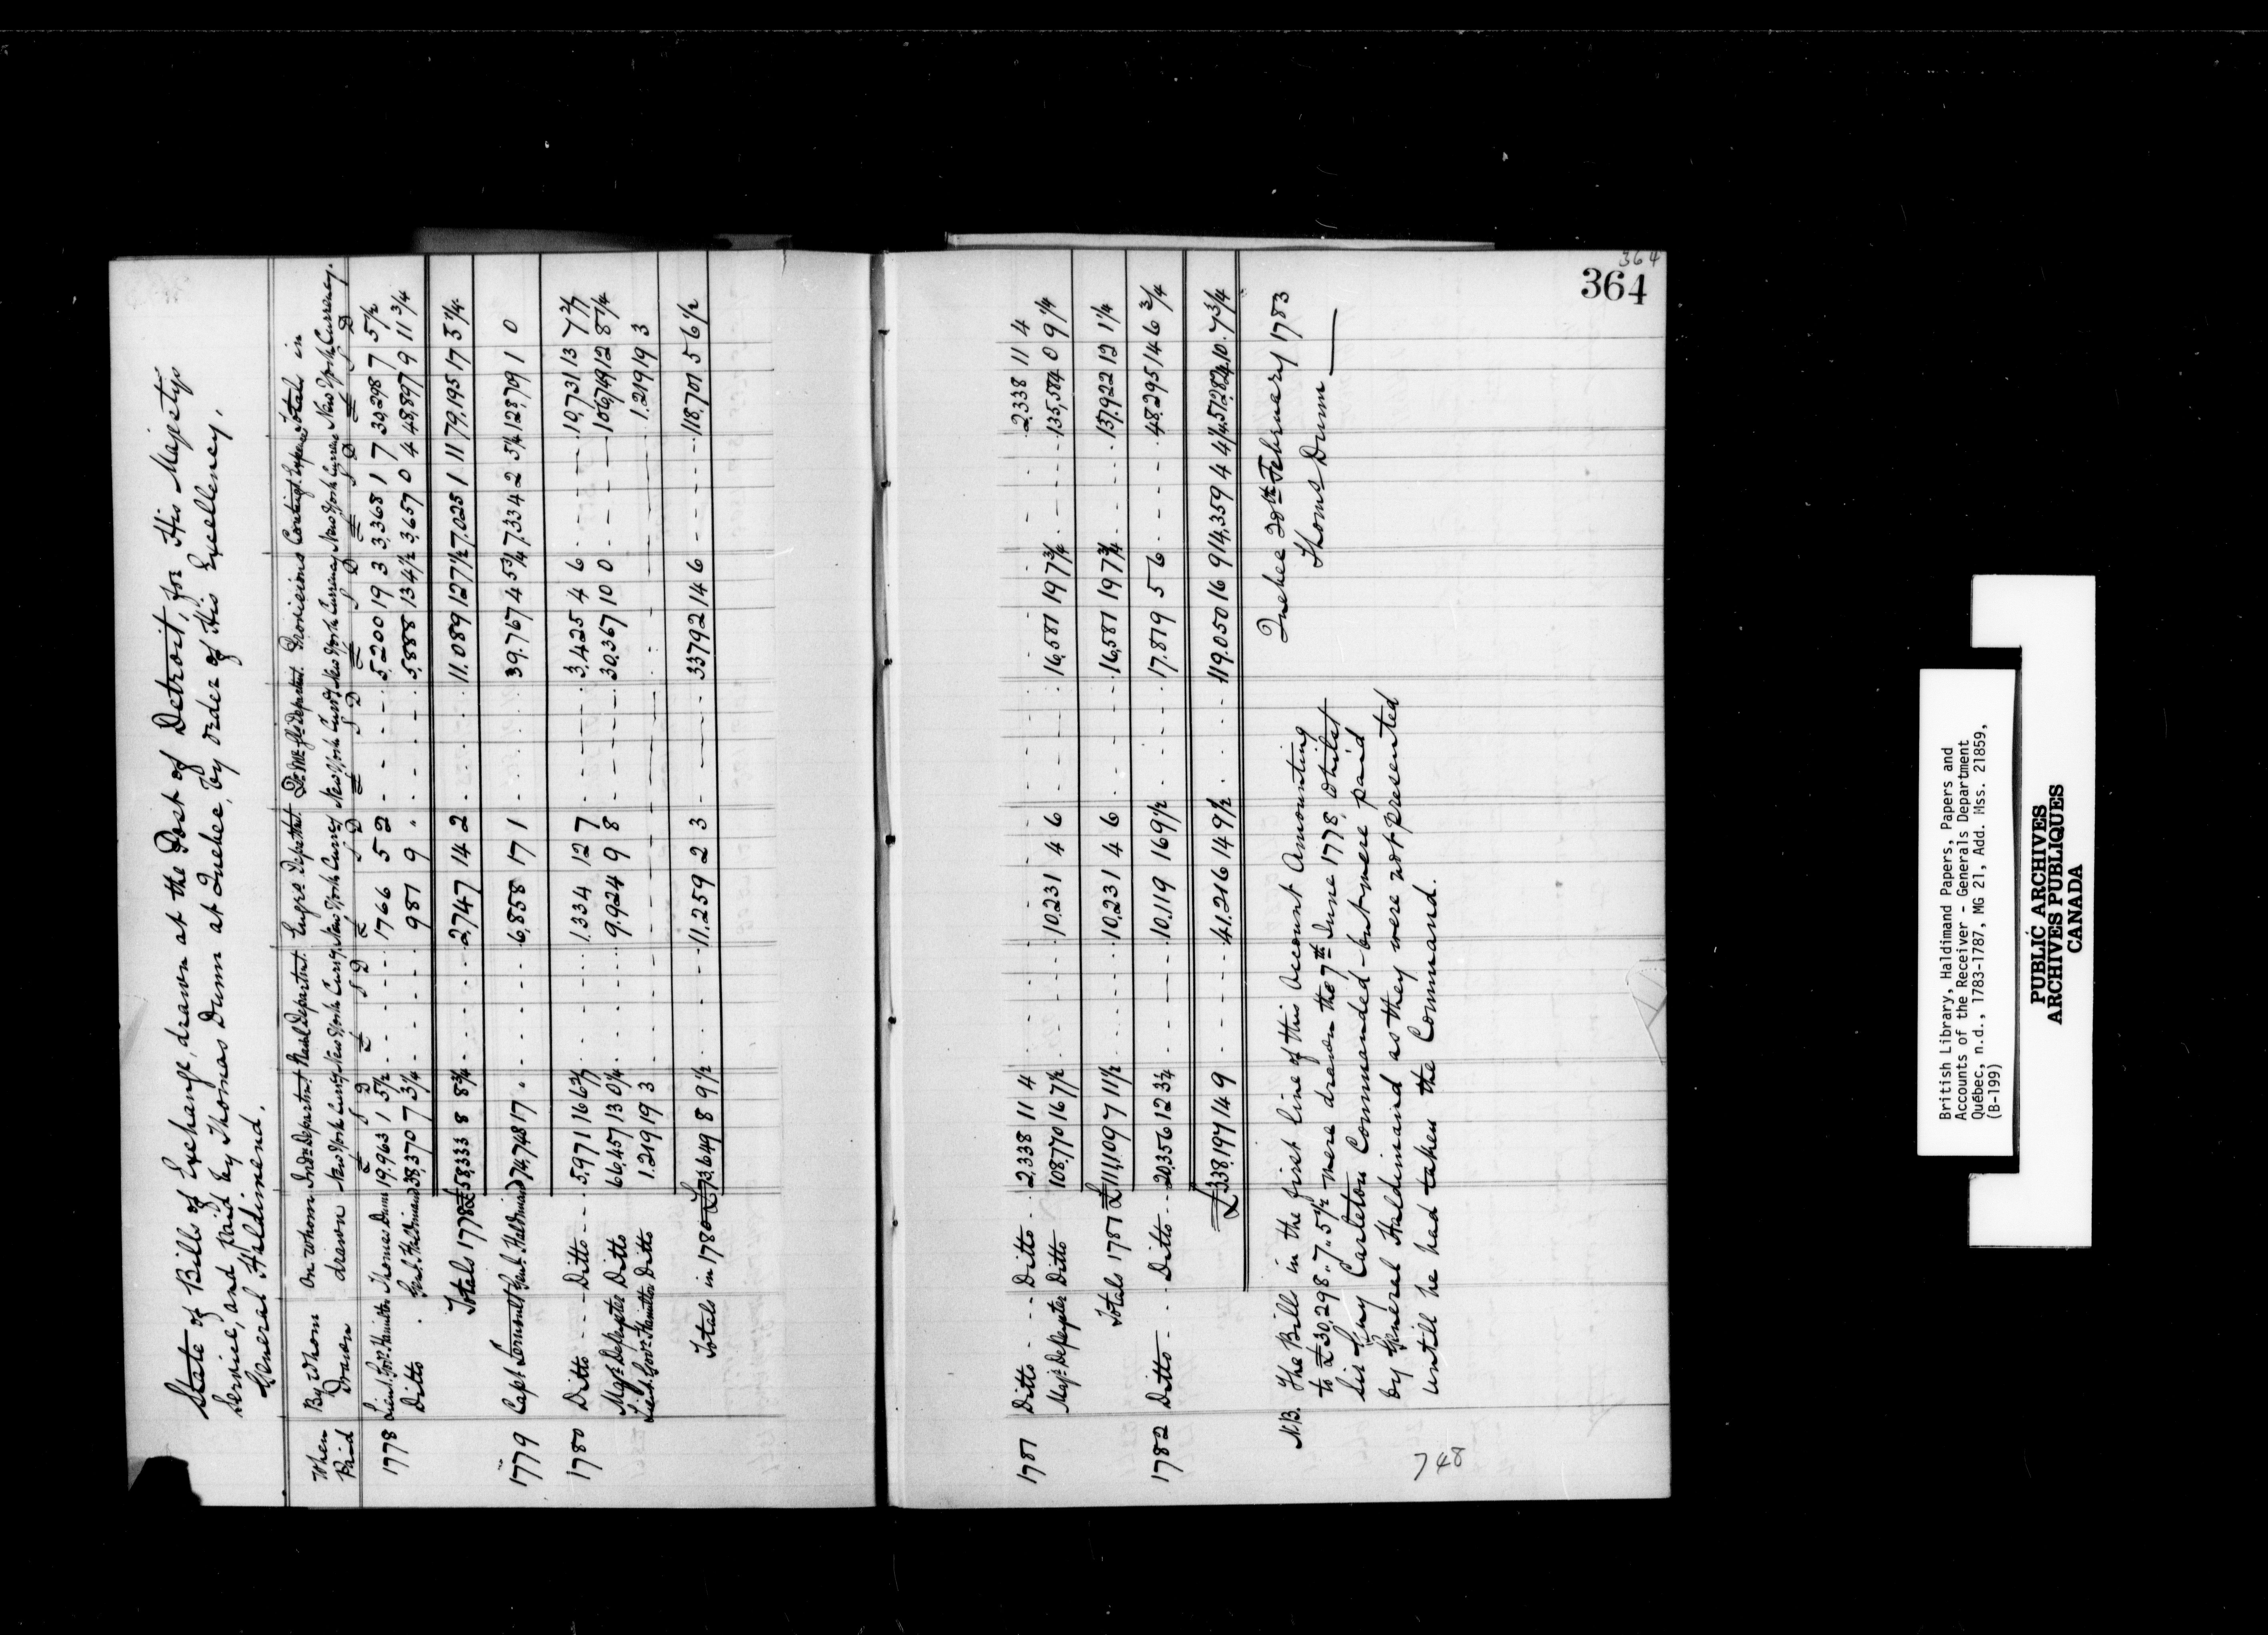 State of Bills of Exchange, drawn at the Post of Detroit, for His Majestys
Service, and paid by Thomas Dunn at Quebec, by order of His Excellency,
General Haldimand.
When Paid By Whom Drawn On whom drawn Indn. Department Naval Department Engrs. Departmt. Provisions Contingt. Expence Totals in
New York Curry. New York Curry. New York Curry New York Curry New York Currency New York Currency New York Currency.
£ S D £ S D £ S D £ S D £ S D £ S D £ S D
1778 Lieut. Govr. Hamilton Thomas Dunn 19,963 1 5½ - - - 1766 5 2 - - - 5,200 19 3 3,368 1 7 30,298 7 5½
Ditto . Genl. Haldimand 38,370 7 3¼ - - - 981 9 " - - - 5,888 13 4½ 3,657 0 4 48,897 9 11¾
Totals 1778 £ 58,333 8 8¾ - - - 2,747 14 2 - - - 11.089 12 7½ 7.025 1 11 79,195 17 5¼
1779 Capt Lernoult Genl. Haldimand 74,748 17 " - - - 6,858 17 1 - - - 39.767 4 5¾ 7,334 2 5¼ 128,709 1 0
1780 Ditto - - - Ditto - - - 5,971 16 6 2/7 - - - 1.334 12 7 - - - 3,425 4 6 - - - 10,731 13 7 2/7
Majr. Depeyster Ditto 66,457 13 0¼ - - - 9,924 9 8 - - - 30,367 10 0 - - - 106,749 12 8¼
Lieut. Govr. Hamilton Ditto 1.219 19 3 - - - - - - - - - - - - 1.219 19 3
Totals in 1780 £ 73,649 8 9½ - - - 11.259 2 3 - - - 33792 14 6 - - - 118,701 5 6½
1781 Ditto - - - Ditto - - 2,338 11 4 - - - - - - - - - - - - 2,338 11 4
Majr. Depeyster Ditto 108,770 16 7½ - - - 10,231 4 6 - - - 16,581 19 7¾ - - - 135,584 0 9¼
Totals 1781 £ 111,109 7 11½ - - - 10,231 4 6 - - - 16,581 19 7¾ - - - 137,922 12 1¼
1782 Ditto - - - Ditto - - - 20,356 12 3¼ - - - 10,119 16 9½ - - - 17.819 5 6 - - - 48,295 14 6¾
£ 338.197 14 9 - - - 41.216 14 9½ - - - 119.050 16 9 14,359 4 4¼
Quebec 20th February 1783
Thoms Dunn
N.B. The Bills in the first line of this Account Amounting
to £30,298 " 7 " 5½ were drawn the 7th June 1778, whilst
Sir Guy Carleton Commanded - but were paid
by General Haldimand as they were not presented
until he had taken the Command.
748
364
364
British Library, Haldimand Papers, Papers and
Accounts of the Receiver - Generals Department
Québec, n.d., 1783-1787, MG 21, Add. Mss. 21859,
(B-199)
PUBLIC ARCHIVES
ARCHIVES PUBLIQUES
CANADA